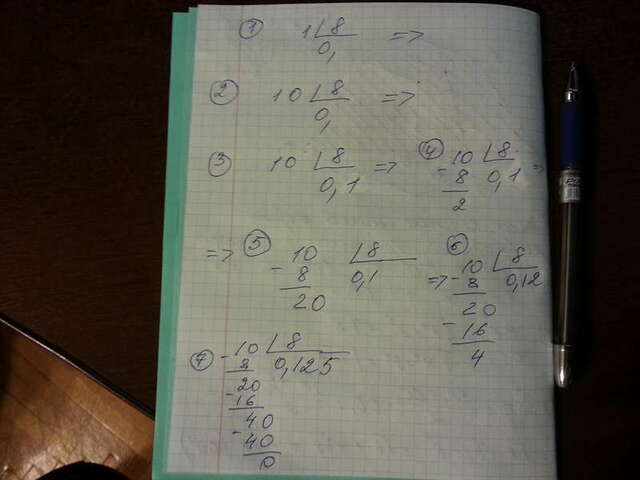 ① 1 | 8 =>
0,
② 10 | 8 =>
0,
③ 10 | 8 =>
0,1
④ 10 | 8 =>
- 8 0,1
2
=> ⑤ 10 | 8 =>
- 8 0,1
20
⑥ 10 | 8
- 8 0,12
20
- 16
4
⑦ 10 | 8
- 8 0,125
20
- 16
40
- 40
0